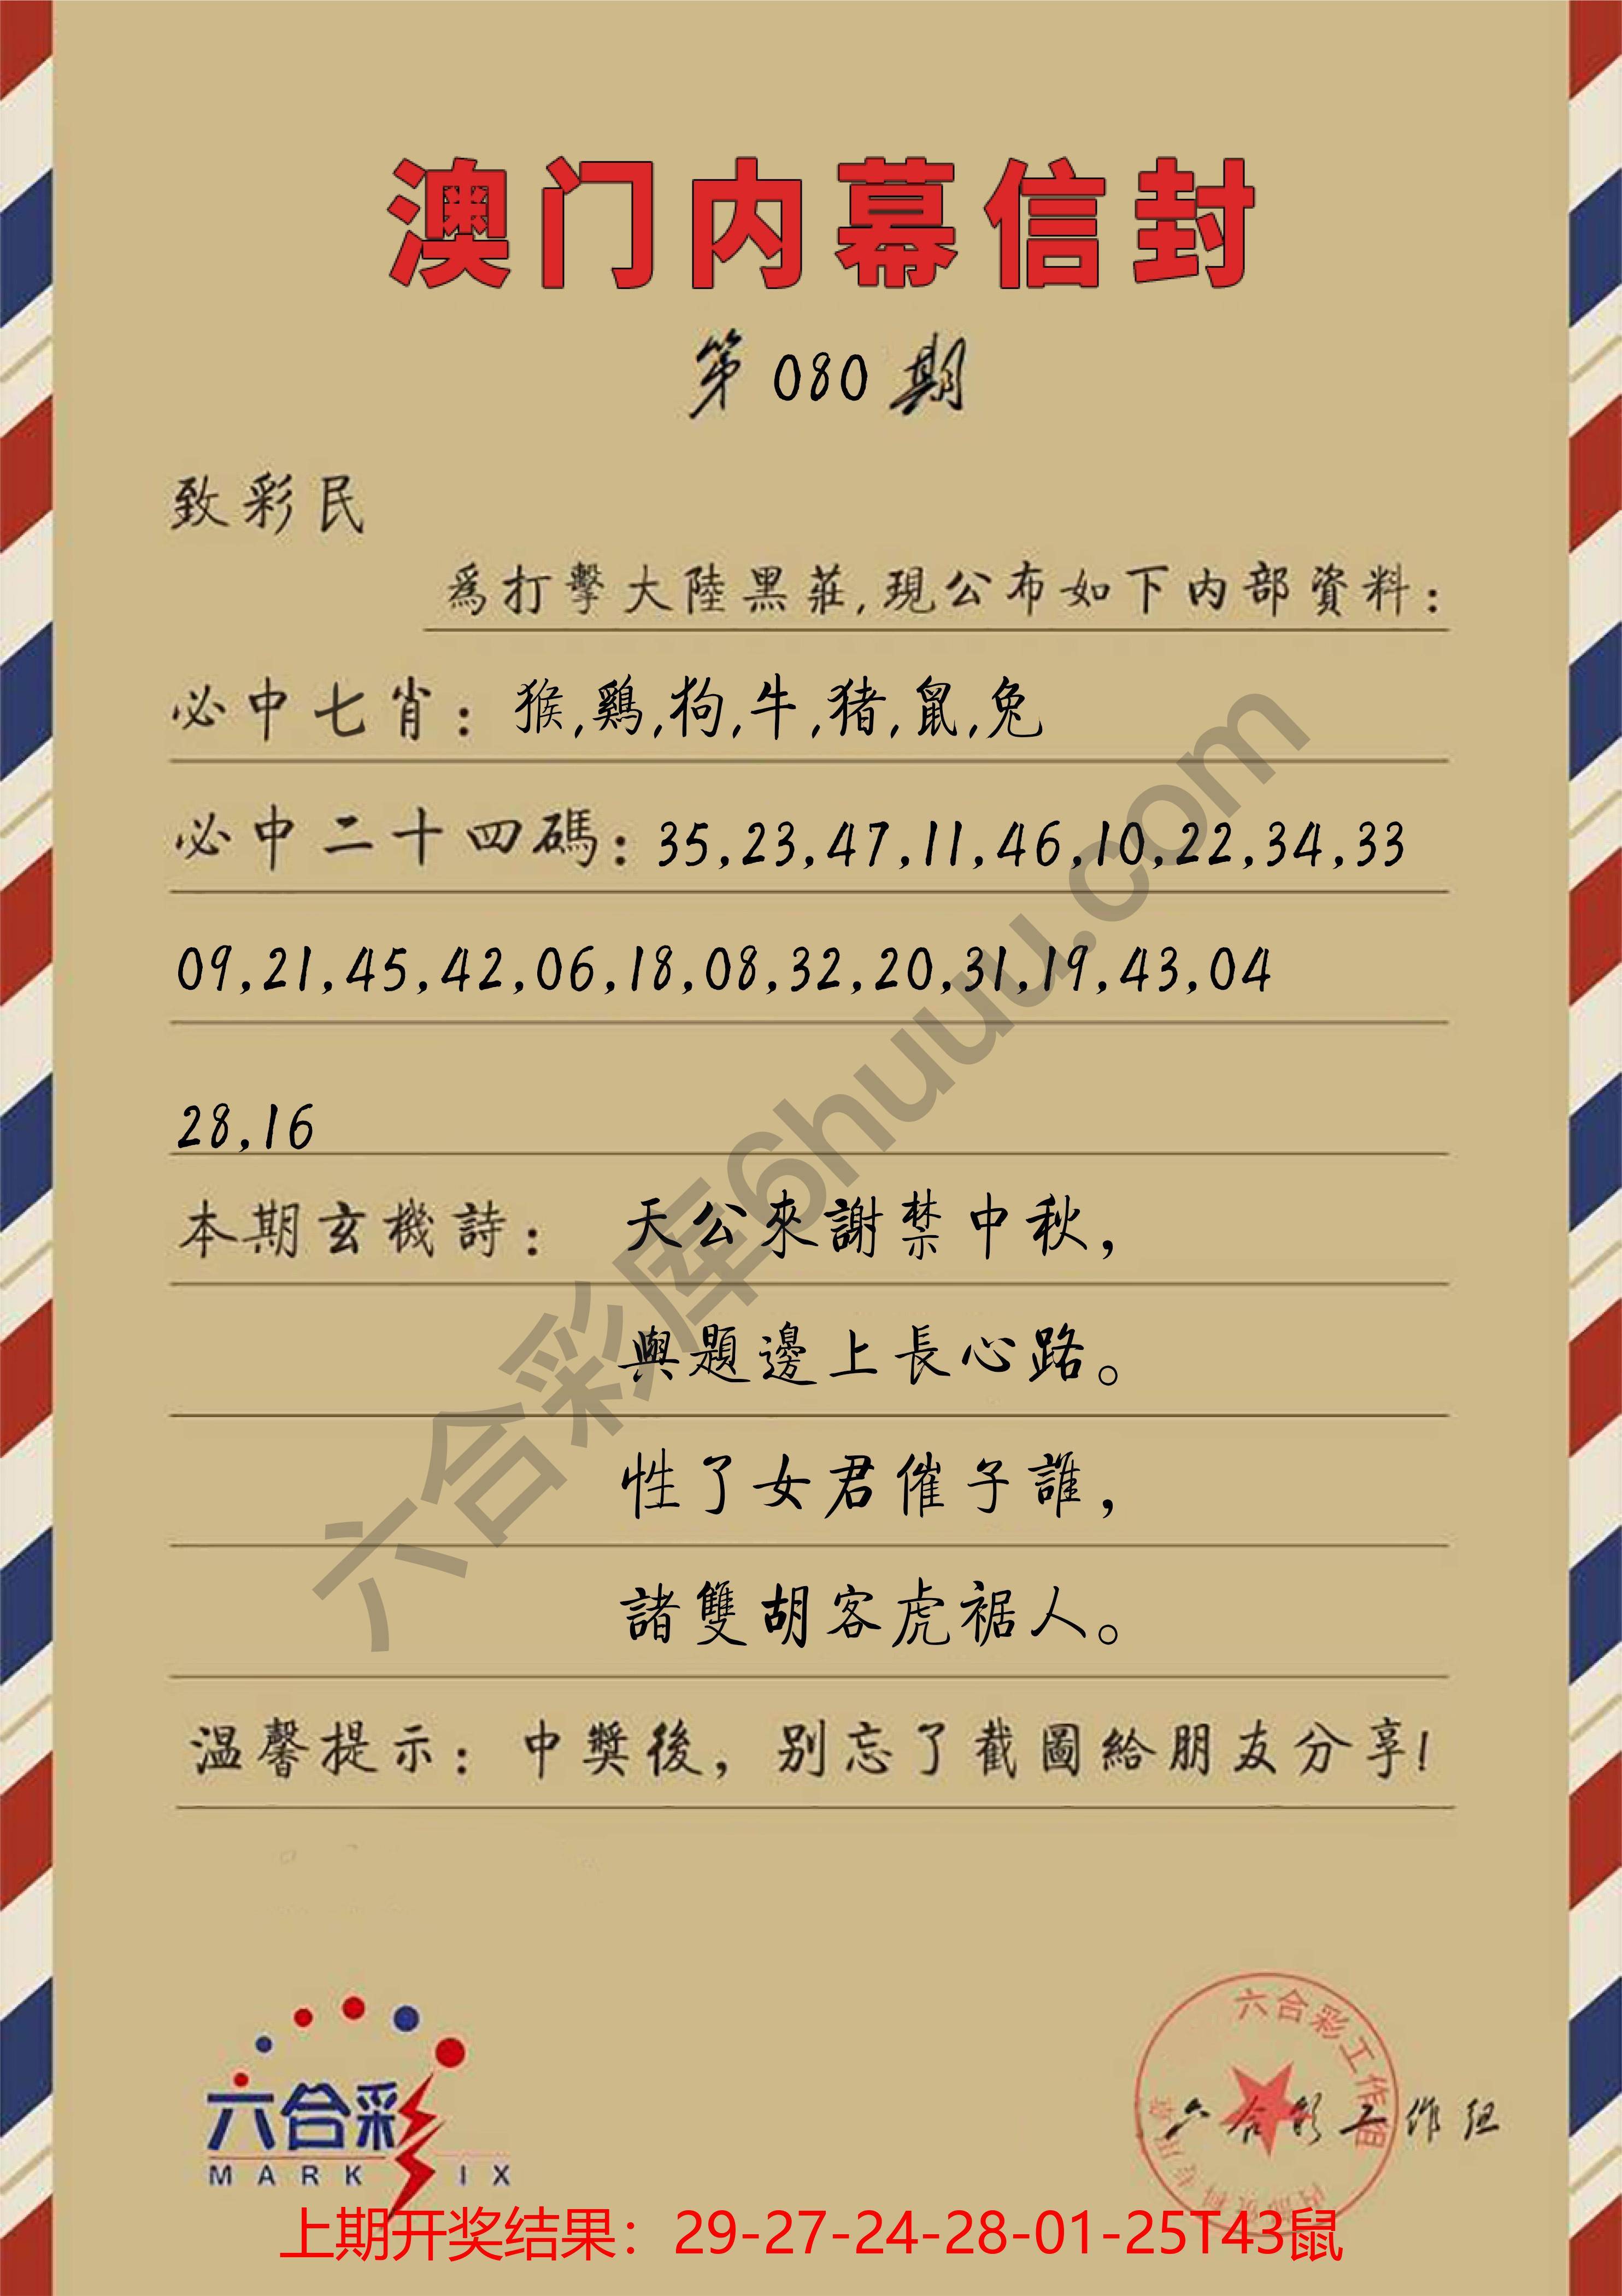 澳门内幕信封
第080期
致彩民
爲打擊大陸黑莊,現公布如下内部資料:
必中七肖: 猴,鷄,狗,牛,猪,鼠,兔
必中二十四碼: 35,23,47,11,46,10,22,34,33
09,21,45,42,06,18,08,32,20,31,19,43,04
28,16
本期玄機詩: 天公來謝禁中秋,
與題邊上長心路。
性了女君催子誰,
諸雙胡客虎裾人。
温馨提示: 中獎後, 别忘了截圖給朋友分享!
六合彩库6huuu.com
六合彩
MARK IX
六合彩工作组
六合彩工作组
上期开奖结果：29-27-24-28-01-25T43鼠